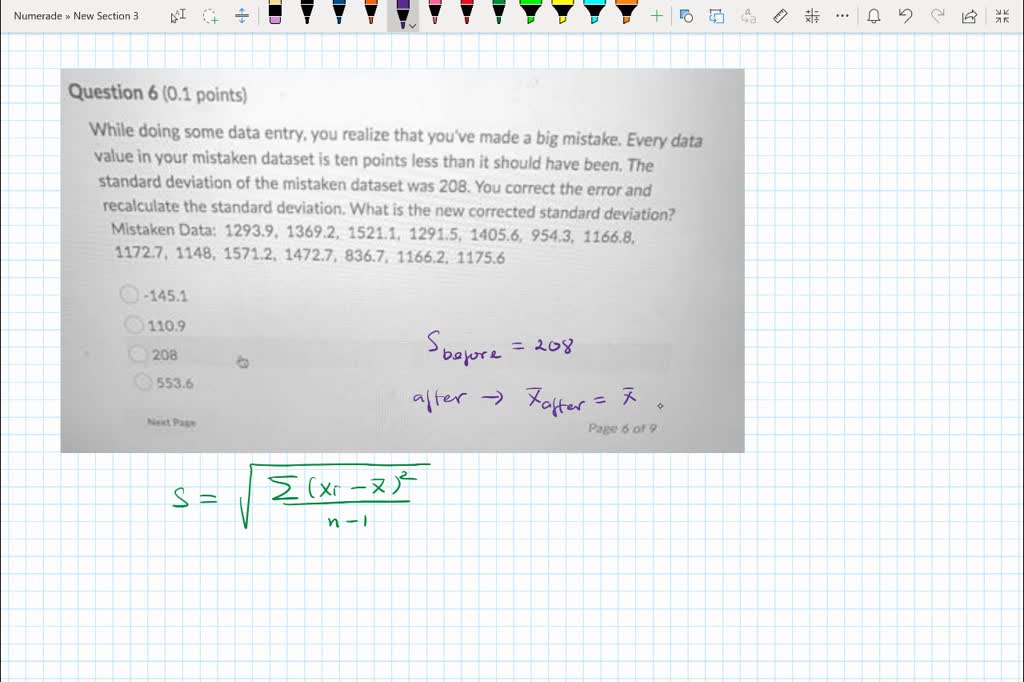 Numerade » New Section 3
Question 6 (0.1 points)
While doing some data entry, you realize that you've made a big mistake. Every data
value in your mistaken dataset is ten points less than it should have been. The
standard deviation of the mistaken dataset was 208. You correct the error and
recalculate the standard deviation. What is the new corrected standard deviation?
Mistaken Data: 1293.9, 1369.2, 1521.1, 1291.5, 1405.6, 954.3, 1166.8,
1172.7, 1148, 1571.2, 1472.7, 836.7, 1166.2, 1175.6
-145.1
110.9
208
553.6
S before = 208
after → x̄ after = x̄
Next Page
Page 6 of 9
S = √(Σ(xi - x̄)² / n-1)